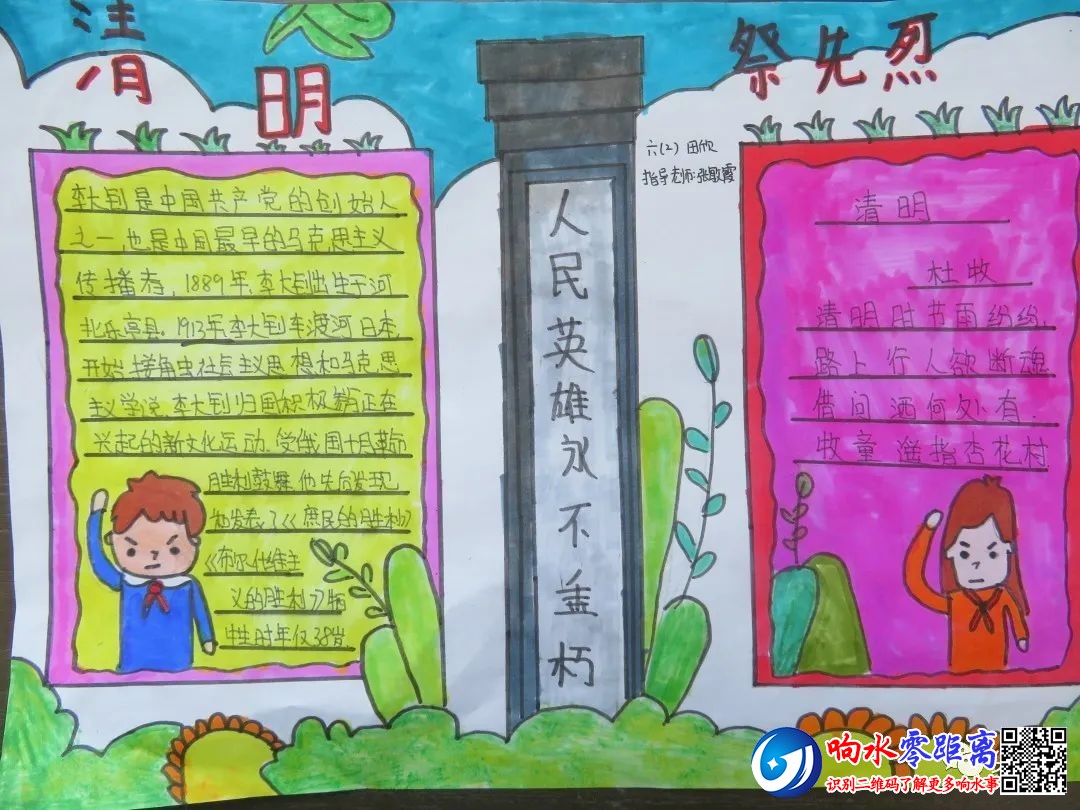 清明
祭先烈
六(2) 田欣
指导老师:张敏霞
李大钊是中国共产党的创始人
之一,也是中国最早的马克思主义
传播者,1889年,李大钊出生于河
北乐亭县。1913年李大钊东渡河日本,
开始接触社会主义思想和马克思
主义学说,李大钊归国积极正在
兴起的新文化运动.受俄国十月革命
胜利鼓舞他先后发现
和发表了《庶民的胜利》
《布尔什维主
义的胜利》牺
牲时年仅38岁
人民英雄永不朽
清明
杜牧
清明时节雨纷纷,
路上行人欲断魂
借问洒何处有.
牧童遥指杏花村
响水零距离
识别二维码了解更多响水事